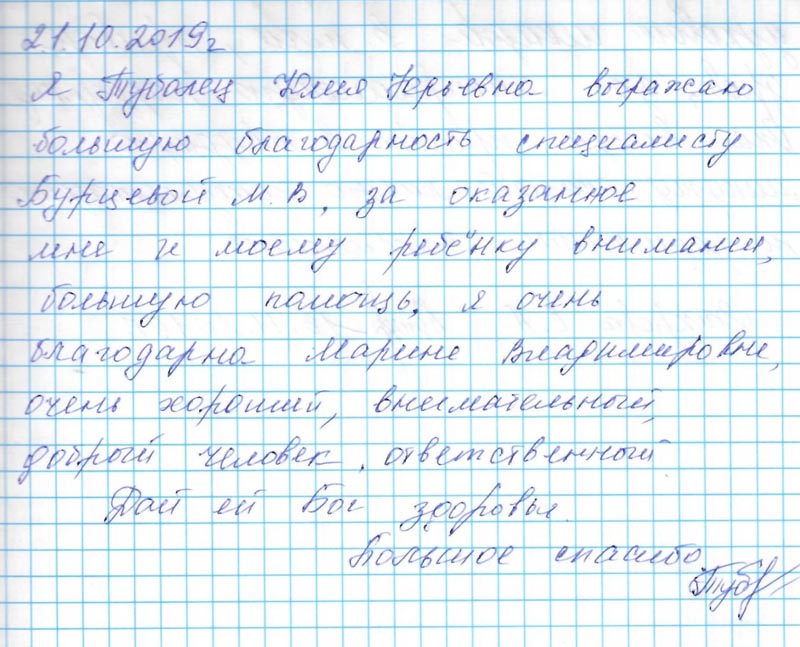 21.10.2019г
Я Тубалец Юлия Юрьевна выражаю
большую благодарность специалисту
Бурцевой М.В, за оказанное
мне и моему ребёнку внимании,
большую помощь, я очень
благодарна Марине Владимировне,
очень хороший, внимательный,
добрый человек, ответственный
Дай ей Бог здоровья.
Большое спасибо
Туб